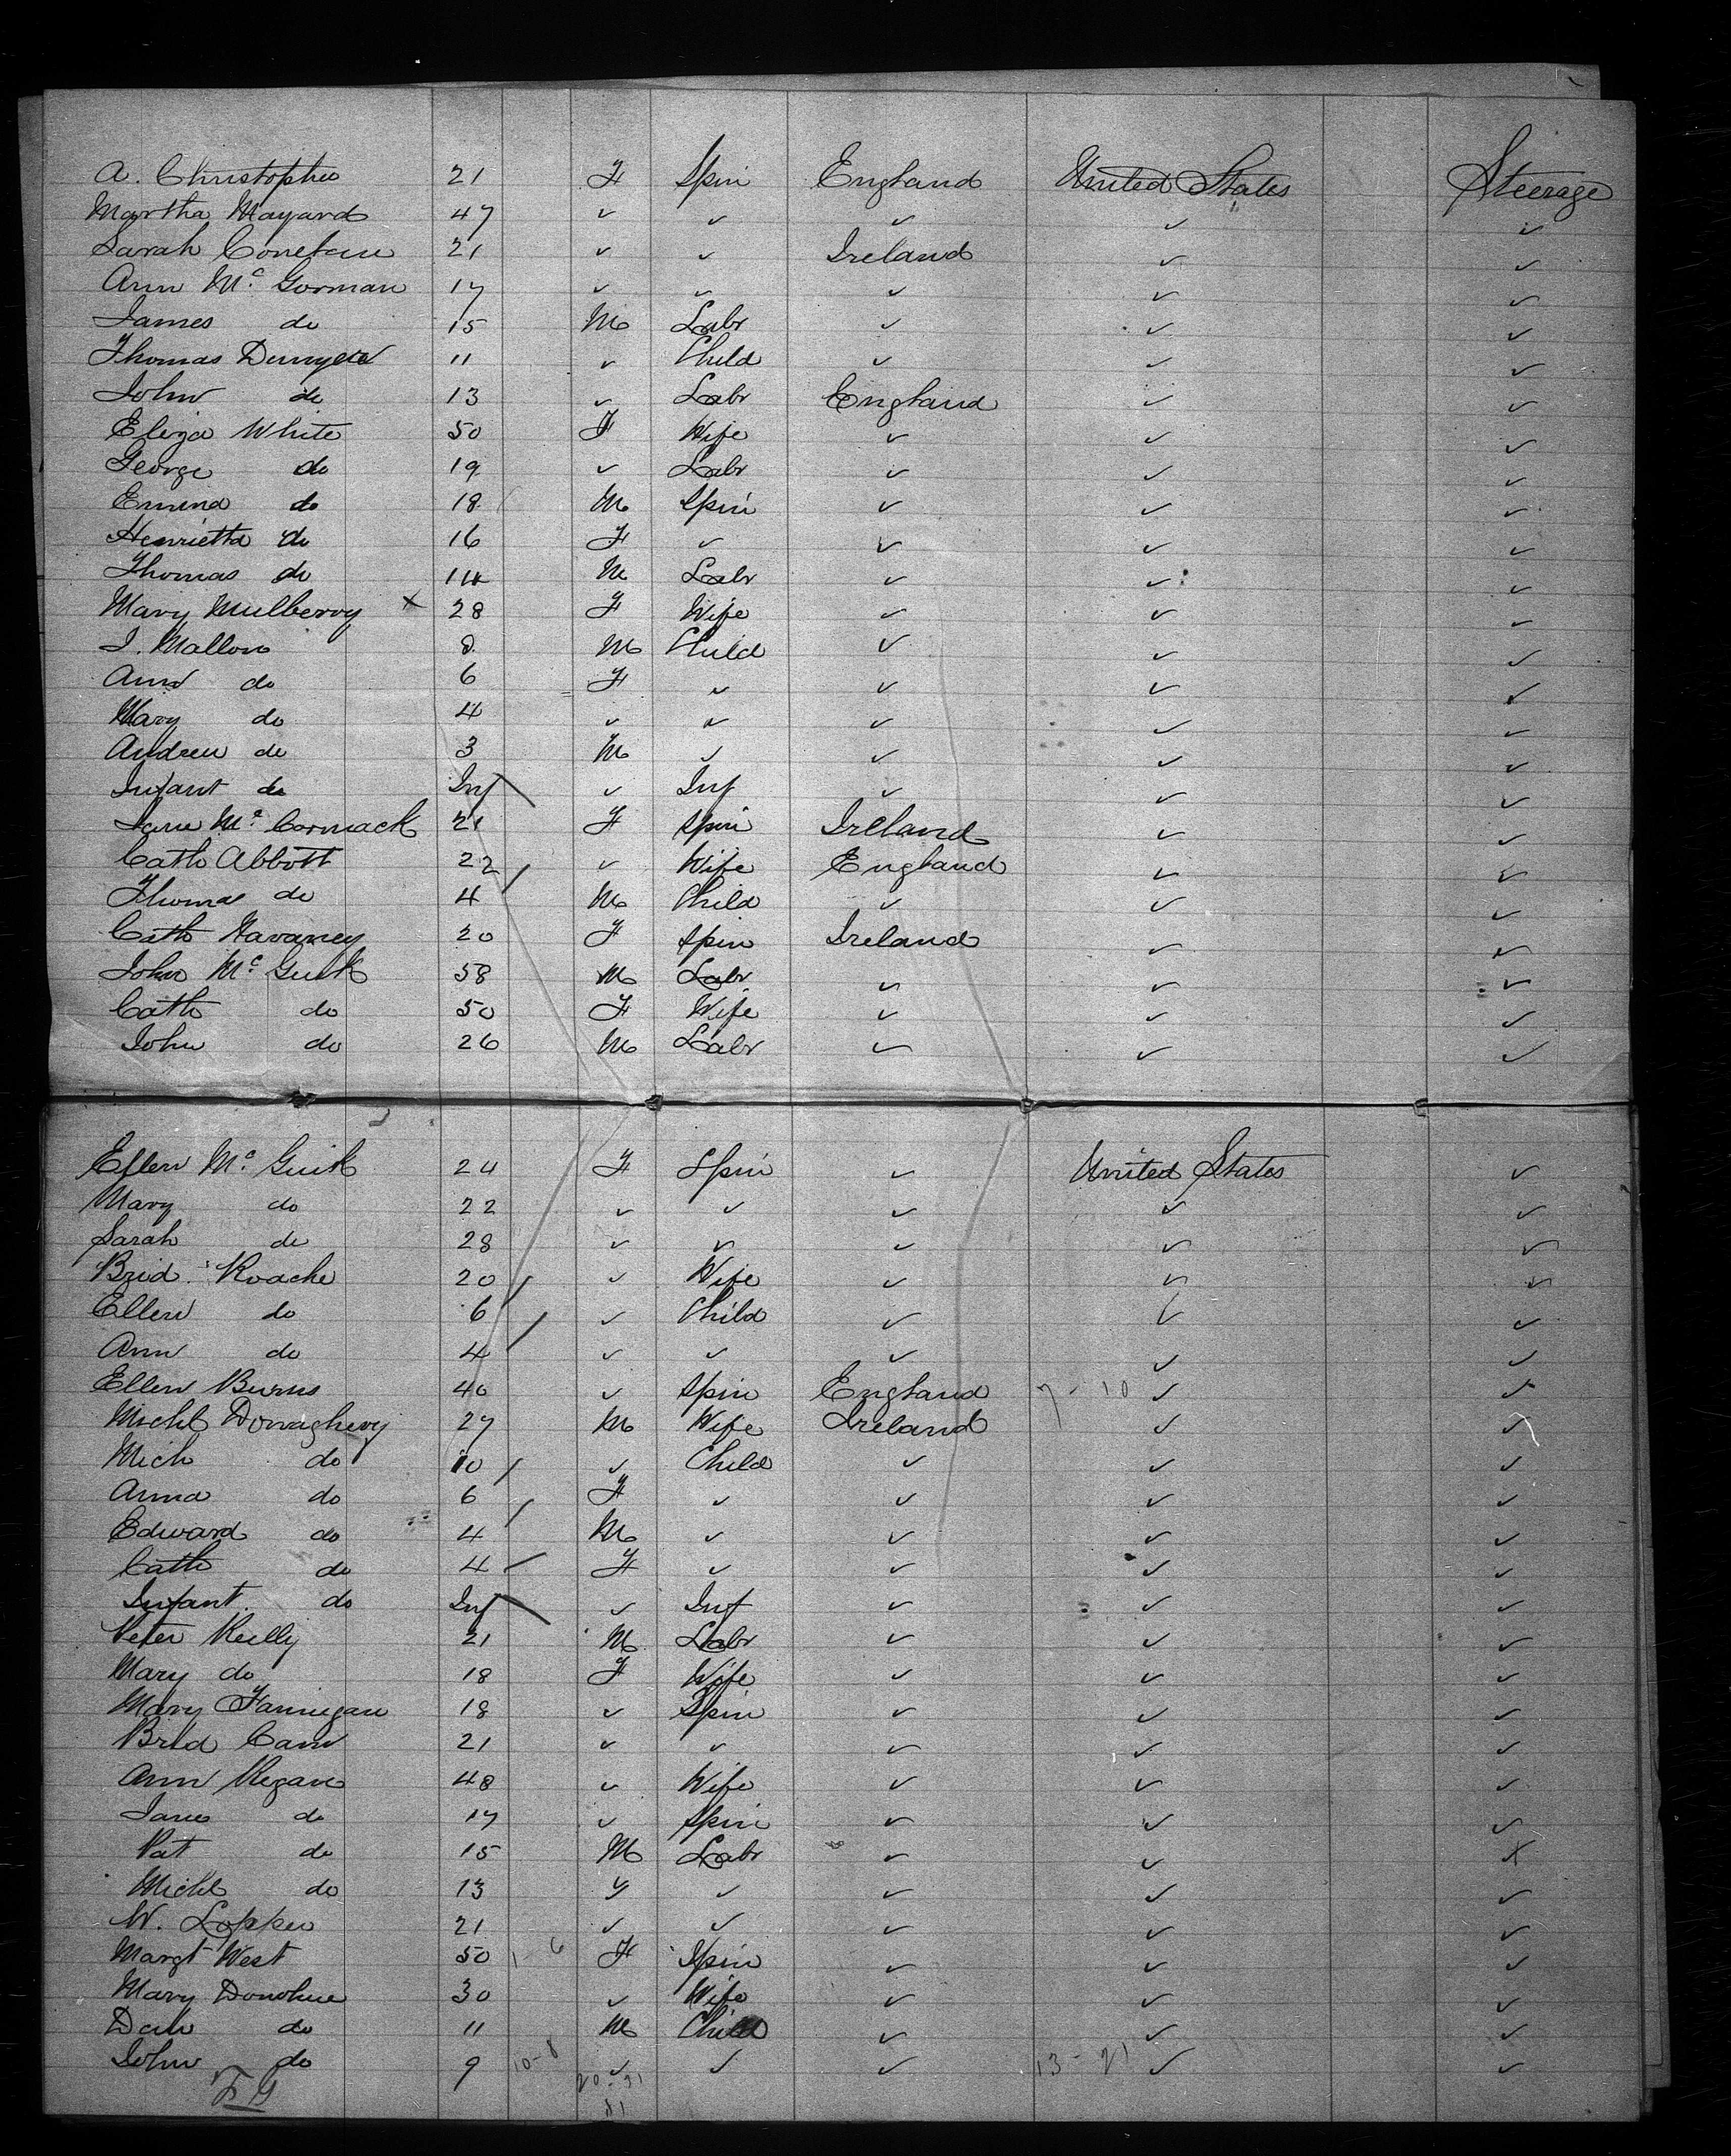 A. Christopher 21 F Spin England United States Steerage
Martha Mayard 47 ✓ ✓ ✓ ✓ ✓
Sarah 21 ✓ ✓ Ireland ✓ ✓
Ann Mc Gorman 17 ✓ ✓ ✓ ✓ ✓
James do 15 M Labr ✓ ✓ ✓
Thomas 11 ✓ Child ✓ ✓ ✓
John do 13 ✓ Labr England ✓ ✓
Eliza White 50 F Wife ✓ ✓ ✓
George do 19 ✓ Labr ✓ ✓ ✓
Emma do 18 M Spin ✓ ✓ ✓
Henrietta do 16 F ✓ ✓ ✓ ✓
Thomas do 14 M Labr ✓ ✓ ✓
Mary Mulberry x 28 F Wife ✓ ✓ ✓
J. Mallon 8 M Child ✓ ✓ ✓
Ann do 6 F ✓ ✓ ✓ ✓
Mary do 4 ✓ ✓ ✓ ✓ ✓
Andrew do 3 M ✓ ✓ ✓ ✓
Infant do Inf ✓ Inf ✓ ✓ ✓
Jane Mc Cormack 21 F Spin Ireland ✓ ✓
Cath Abbott 22 ✓ Wife England ✓ ✓
Thomas do 4 M Child ✓ ✓ ✓
Cath Havaney 20 F Spin Ireland ✓ ✓
John Mc Guik 58 M Labr ✓ ✓ ✓
Cath do 50 F Wife ✓ ✓ ✓
John do 26 M Labr ✓ ✓ ✓
Ellen Mc Guik 24 F Spin ✓ United States ✓
Mary do 22 ✓ ✓ ✓ ✓ ✓
Sarah do 28 ✓ ✓ ✓ ✓ ✓
Brid. Roache 20 ✓ Wife ✓ ✓ ✓
Ellen do 6 ✓ Child ✓ ✓ ✓
Ann do 4 ✓ ✓ ✓ ✓ ✓
Ellen Burns 40 ✓ Spin England 7-10 ✓ ✓
Michl Donaghery 27 M Wife Ireland ✓ ✓
Mich do 10 ✓ Child ✓ ✓ ✓
Anna do 6 F ✓ ✓ ✓ ✓
Edward do 4 M ✓ ✓ ✓ ✓
Cath do 4 F ✓ ✓ ✓ ✓
Infant do Inf ✓ Inf ✓ ✓ ✓
Peter Reilly 21 M Labr ✓ ✓ ✓
Mary do 18 F Wife ✓ ✓ ✓
Mary Fannigan 18 ✓ Spin ✓ ✓ ✓
Brid Cann 21 ✓ ✓ ✓ ✓ ✓
Ann Regan 48 ✓ Wife ✓ ✓ ✓
Jane do 17 ✓ Spin ✓ ✓ ✓
Pat do 15 M Labr ✓ ✓ x
Michl do 13 ✓ ✓ ✓ ✓ ✓
W. 21 ✓ ✓ ✓ ✓ ✓
Margt West 50 1-6 F Spin ✓ ✓ ✓
Mary Donohue 30 ✓ Wife ✓ ✓ ✓
Dan do 11 M Child ✓ ✓ ✓
John do 9 10-8 ✓ ✓ ✓ 13-21 ✓ ✓